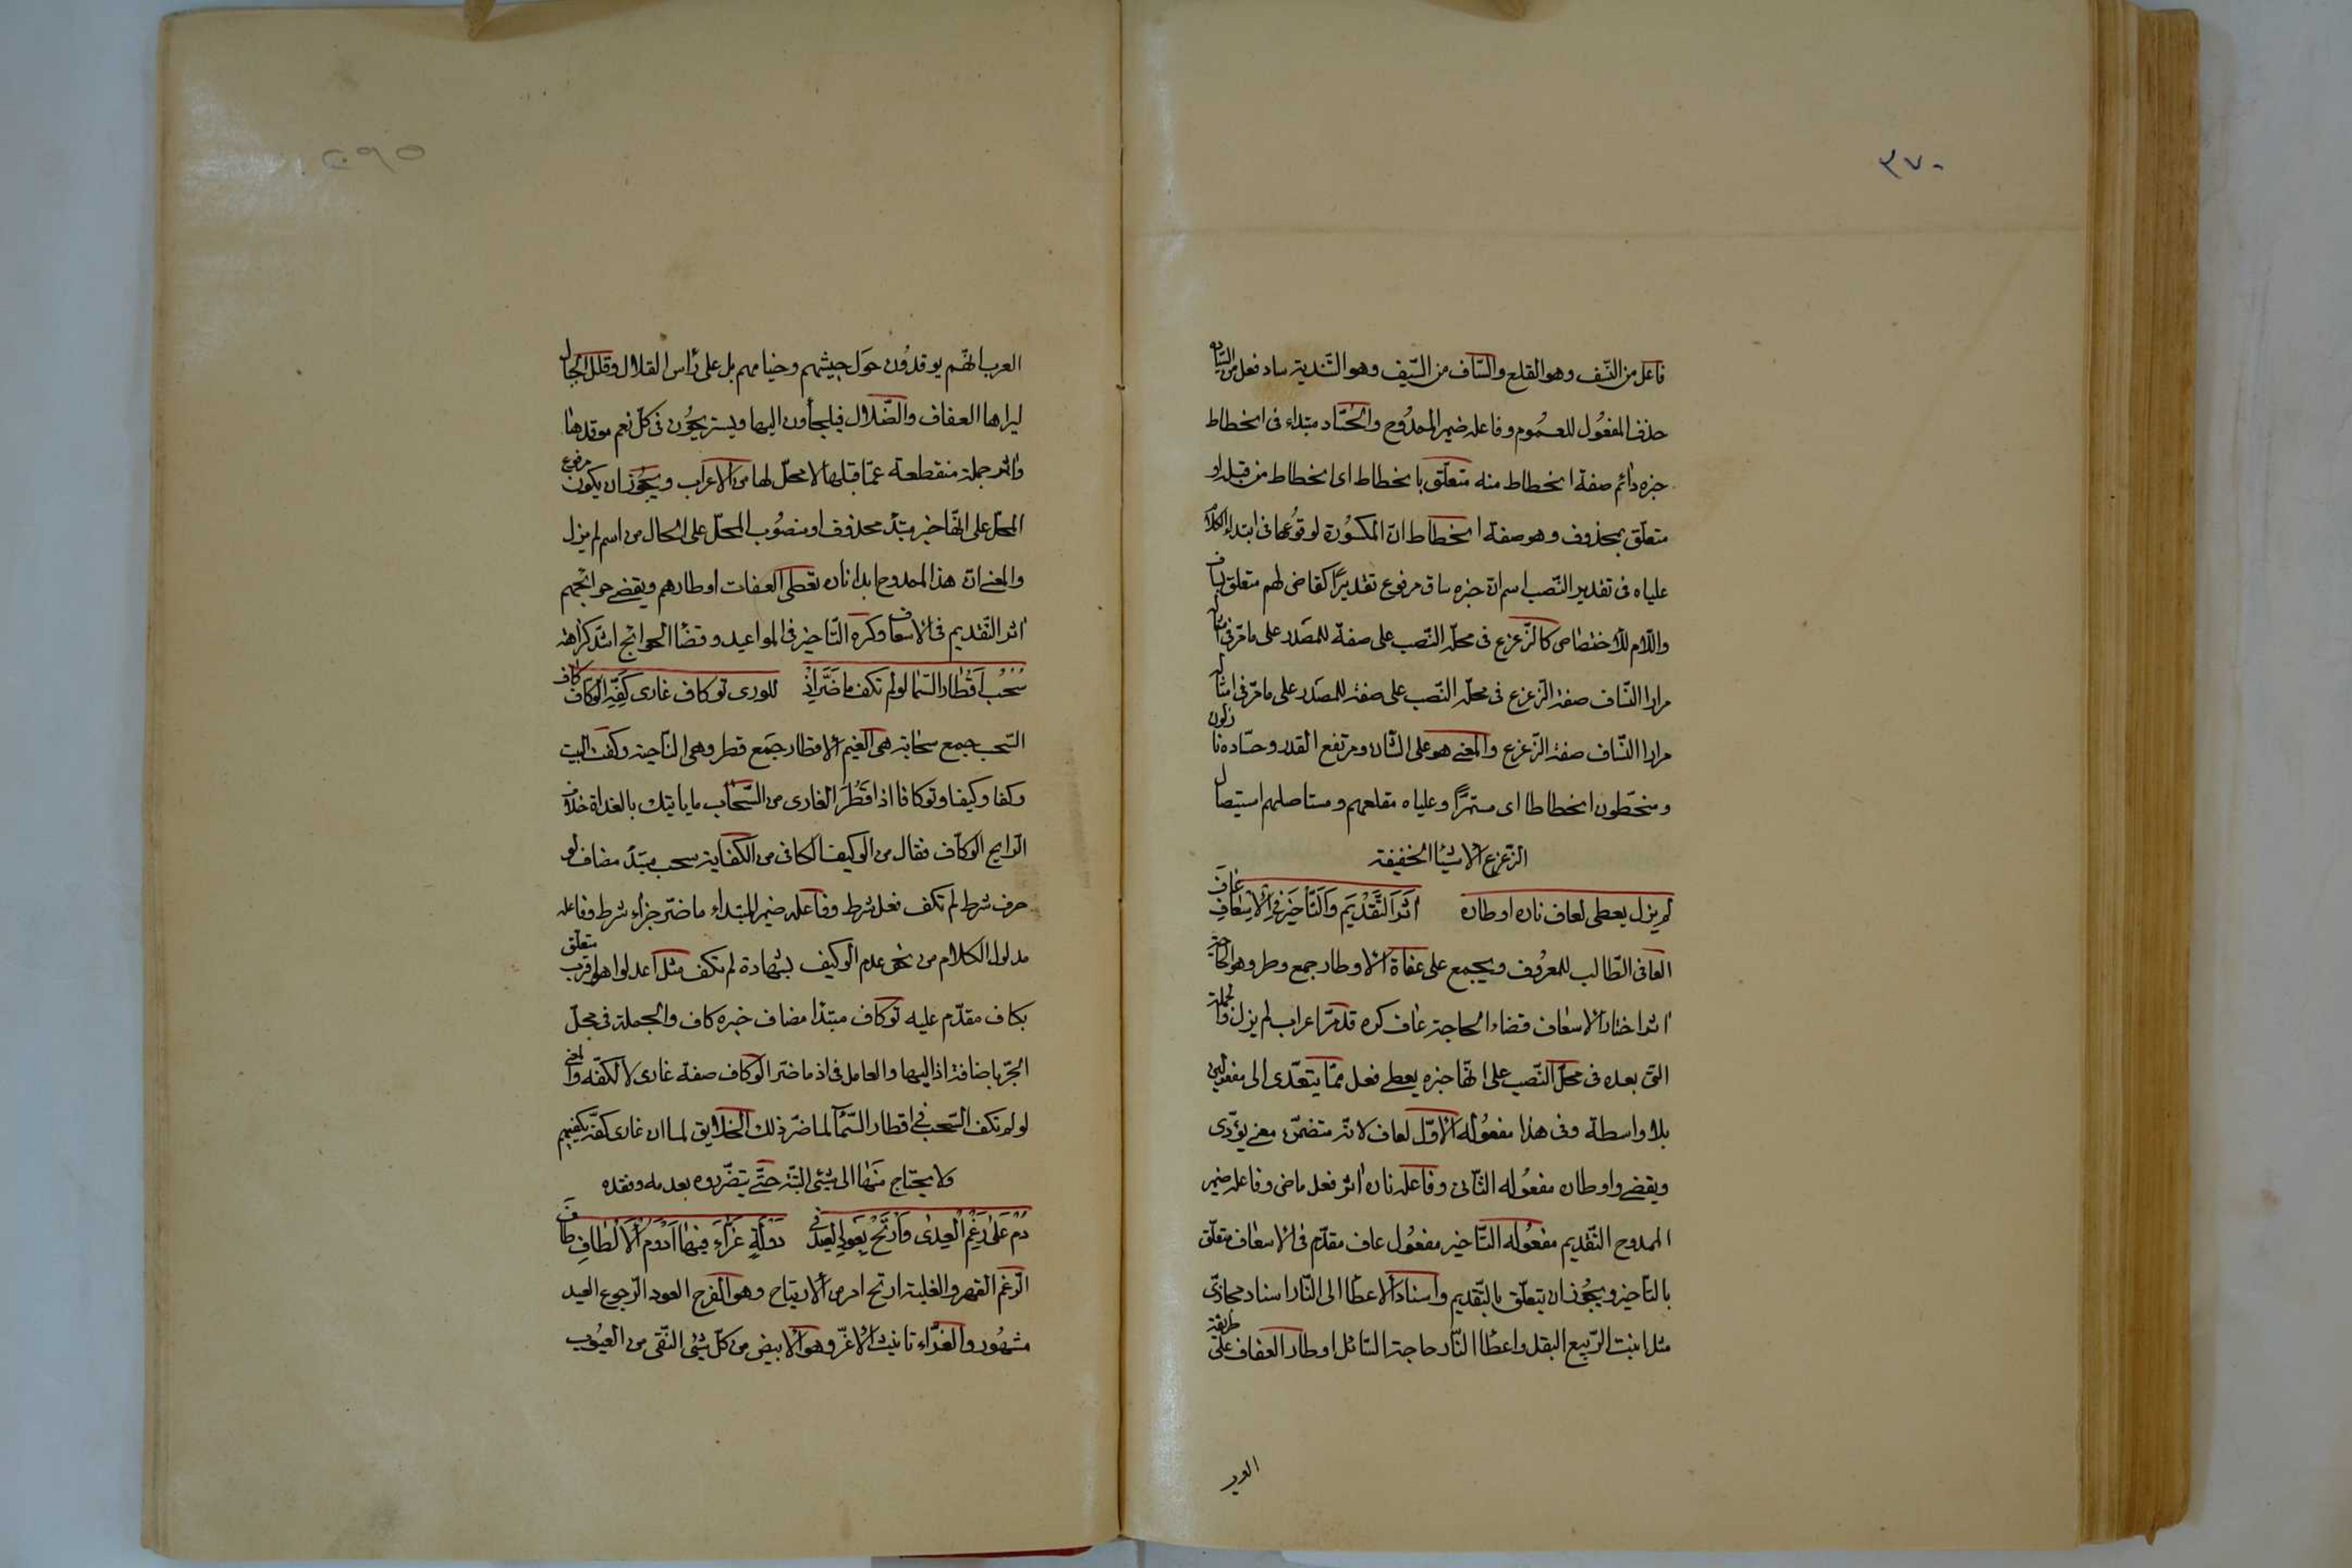 ٣٧٠
فاعل من النسف وهو القلع والسّاف من السّيف وهو التّذرية ساد فعل من السّيادة
حذف المفعُول للعمُوم وفاعله ضمير الممدُوح والحُسّاد مبتداء فى انحطاط
خبره دائم صفة انحطاط منه متعلّق بانحطاط اى انحطاط من قبله او
متعلّق بمحذوف وهو صفة انحطاط انّ المكسُورة لوقوُعها فى ابتداء الكلام
علياه فى تقدير النّصب اسم انّ خبره ساق مرفوع تقديرًا كقاضى لهم متعلق
واللّام للاختصاص كالزّعزع فى محلّ النّصب على صفة للمصَدر على ما مرّ فى امثال
مرارا النّساف صفة الزّعزع فى محلّ النّصب على صفة للمصَدر على ما مرّ فى امثال
مرارا النّساف صفة الزّعزع والمعنى هو على الشّان ومرتفع القدر وحسّاده نازلون
ومنحطّون انحطاطا اى مستمرًّا وعلياه مقلعهم ومستاصلهم استيصال
الزّعزع الاشيا الخفيفة
لم يزل يعطى لعاف ناره اوطاره اثَرَ التَّقْديَم وَالتّأخيَر فى الاسْعافِ عَافَ
العافى الطّالب للمعرُوف ويجمع على عفاة الاوطار جمع وطر وهو الحاجة
اثر اختار الاسعاف قضاء الحاجة عاف كره قد مرّ اعراب لم يزل والجملة
التى بعده فى محلّ النّصب على انّها خبره يعطى فعل ممّا يتعدّى الى مفعولين
بلا واسطة وفى هذا مفعُوله الاوّل لعاف لانّه متضمّن معنى يؤدّى
ويقضى واوطاره مفعُوله الثّانى وفاعله ناره اثر فعل ماضى وفاعله ضمير
الممدوح التّقديم مفعُوله التّاخير مفعُول عاف مقدّم فى الاسعاف متعلّق
بالتّاخير ويجُوز ان يتعلّق بالتّقديم واسناد الاعطا الى النّار اسناد مجازىّ
مثل انبت الرّبيع البقل واعطا النّار حاجة السّائل اوطار العفاف على طريقة
العرب
العرب انّهم يوقدُون حَول جيشهم وخيامهم بل على رأس القلال وقلل الجبال
ليراها العفاف والضّلال فيلجأون اليها ويستريحُون فى كلّ نعم موقدها
واثر جملة منقطعة عمّا قبلها لا محلّ لها من الاعراب ويجُوز ان يكون مرفوع
المحلّ على انّها خبر مبتدُ محذوف او منصُوب المحلّ على الحال من اسم لم يزل
والمعنى انّ هذا الممدوح ابدا ناره تعطى العفات اوطارهم ويقضى حوائجهم
اثر التّقديم فى الاسعاف وكره التّاخير فى المواعيد وقضا الحوائج اشدّ كراهة
سُحُبُ اَقْطار السّما لو لم تكف ما ضَرَّ اِذْ للورى توكاف غادى كَفِّهِ الْوكّافِ كاف
السّحب جمع سحابة هى الغيم الاقطار جَمع قطر وهى النّاحية وكفت البيت
وكفا وكيفا وتوكافا اذا قَطُرَ الغادى من السّحاب ما ياتيك بالغداة خلاف
الرّايح الوكّاف فعّال من الوكيف الكافى من الكفاية سحب مبتدُ مضاف لو
حرف شرط لم تكف فعل شرط وفاعله ضمير المبتداء ما ضرّ جزاء شرط وفاعله
مدلول الكلام من نحو عدم الوكيف بشهادة لم تكف مثل اعدلوا هو اقرب متعلّق
بكاف مقدّم عليه توكاف مبتدا مضاف خبره كاف والجملة فى محلّ
الجرّ باضافة اذ اليها والعامل فى اذ ما ضرّ الوكاف صفة غادى لا لكفّه والمعنى
لو لم تكف السّحب فى اقطار السّمآ لما ضرّ ذلك الخلايق لما ان غادى كفّه يكفيهم
ولا يحتاج منها الى شيئ البتّه حتّى يتضّرروا بعدمه وفقده
دُمْ عَلىٰ رَغْمِ الْعِدىٰ وَارْتَحْ بِعَودِ الْعِيدِ فى دَوْلَةٍ غَرّاءَ فيها اَدْوَمُ الْاَلْطافِ طَافَ
الرّغم القهر والغلبة ارتح امر من الارتياح وهو الفرح العود الرّجوع العيد
مشهُور والغرّاء تانيث الاغرّ وهو الابيض من كلّ شيئ النّقى من العيُوب